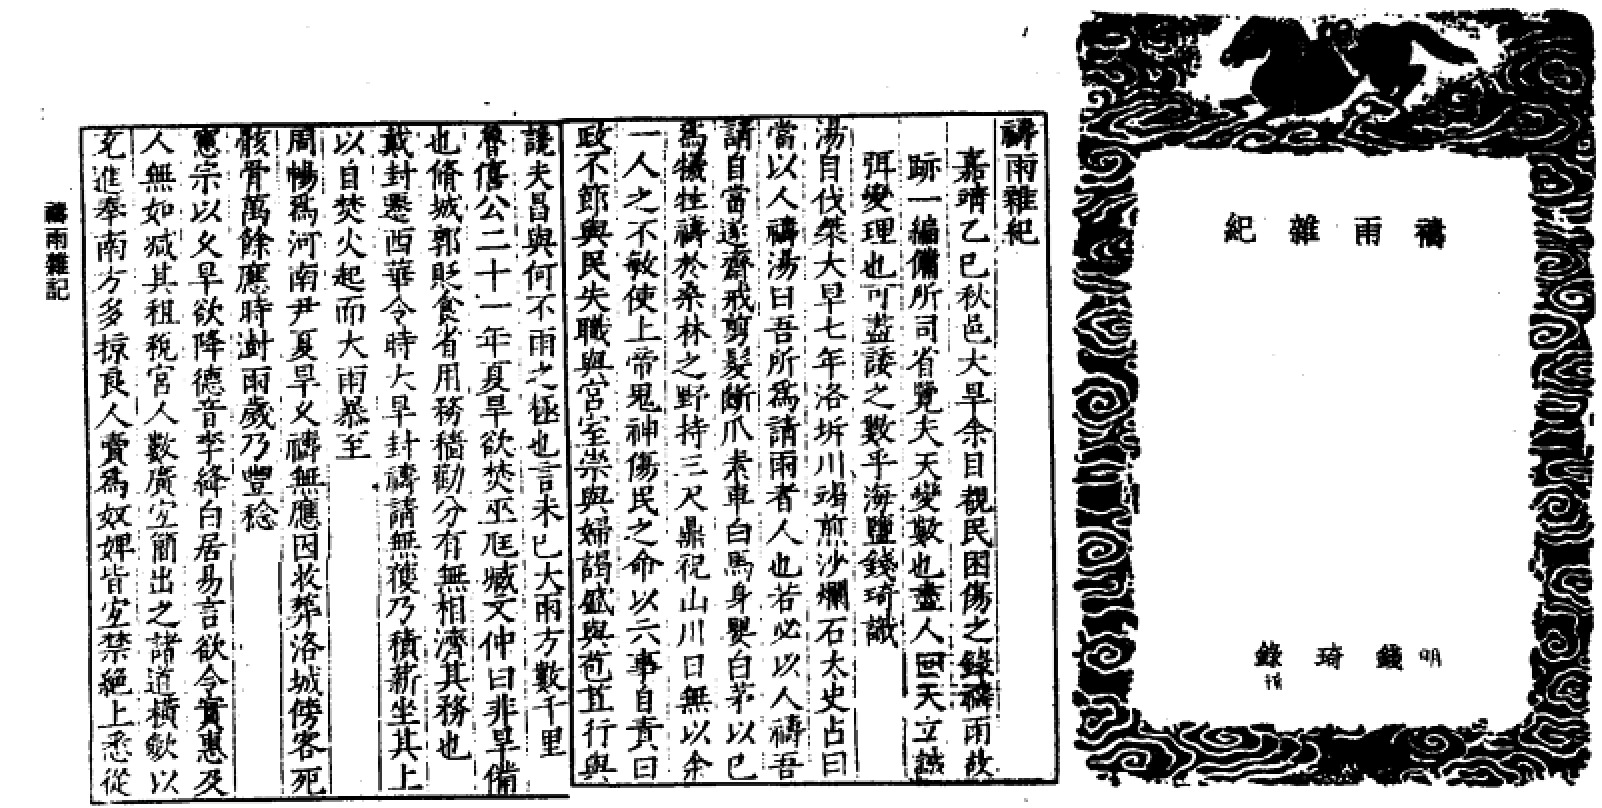 禱雨雜紀
明錢琦錄
禱雨雜紀
嘉靖乙巳秋邑大旱余目覩民困傷之錄禱雨故
跡一編備所司省覽夫天變數也盡人回天立誠
弭變理也可盡諉之數乎海鹽錢琦識
湯自伐桀大旱七年洛坼川竭煎沙爛石太史占曰
當以人禱湯曰吾所爲請雨者人也若必以人禱吾
請自當遂齋戒剪髮斷爪素車白馬身嬰白茅以己
爲犧牲禱於桑林之野持三尺鼎祝山川曰無以余
一人之不敏使上帝鬼神傷民之命以六事自責曰
政不節與民失職與宮室崇與婦謁盛與苞苴行與
讒夫昌與何不雨之極也言未已大雨方數千里
魯僖公二十一年夏旱欲焚巫尫臧文仲曰非旱備
也脩城郭貶食省用務穡勸分有無相濟其務也
戴封遷西華令時大旱封禱請無獲乃積薪坐其上
以自焚火起而大雨暴至
周暢爲河南尹夏旱乂禱無應因收葬洛城傍客死
骸骨萬餘應時澍雨歲乃豐稔
憲宗以乂旱欲降德音李絳白居易言欲令實惠及
人無如減其租稅宮人數廣宜簡出之諸道橫斂以
充進奉南方多掠良人賣爲奴婢皆宜禁絕上悉從
禱雨雜記